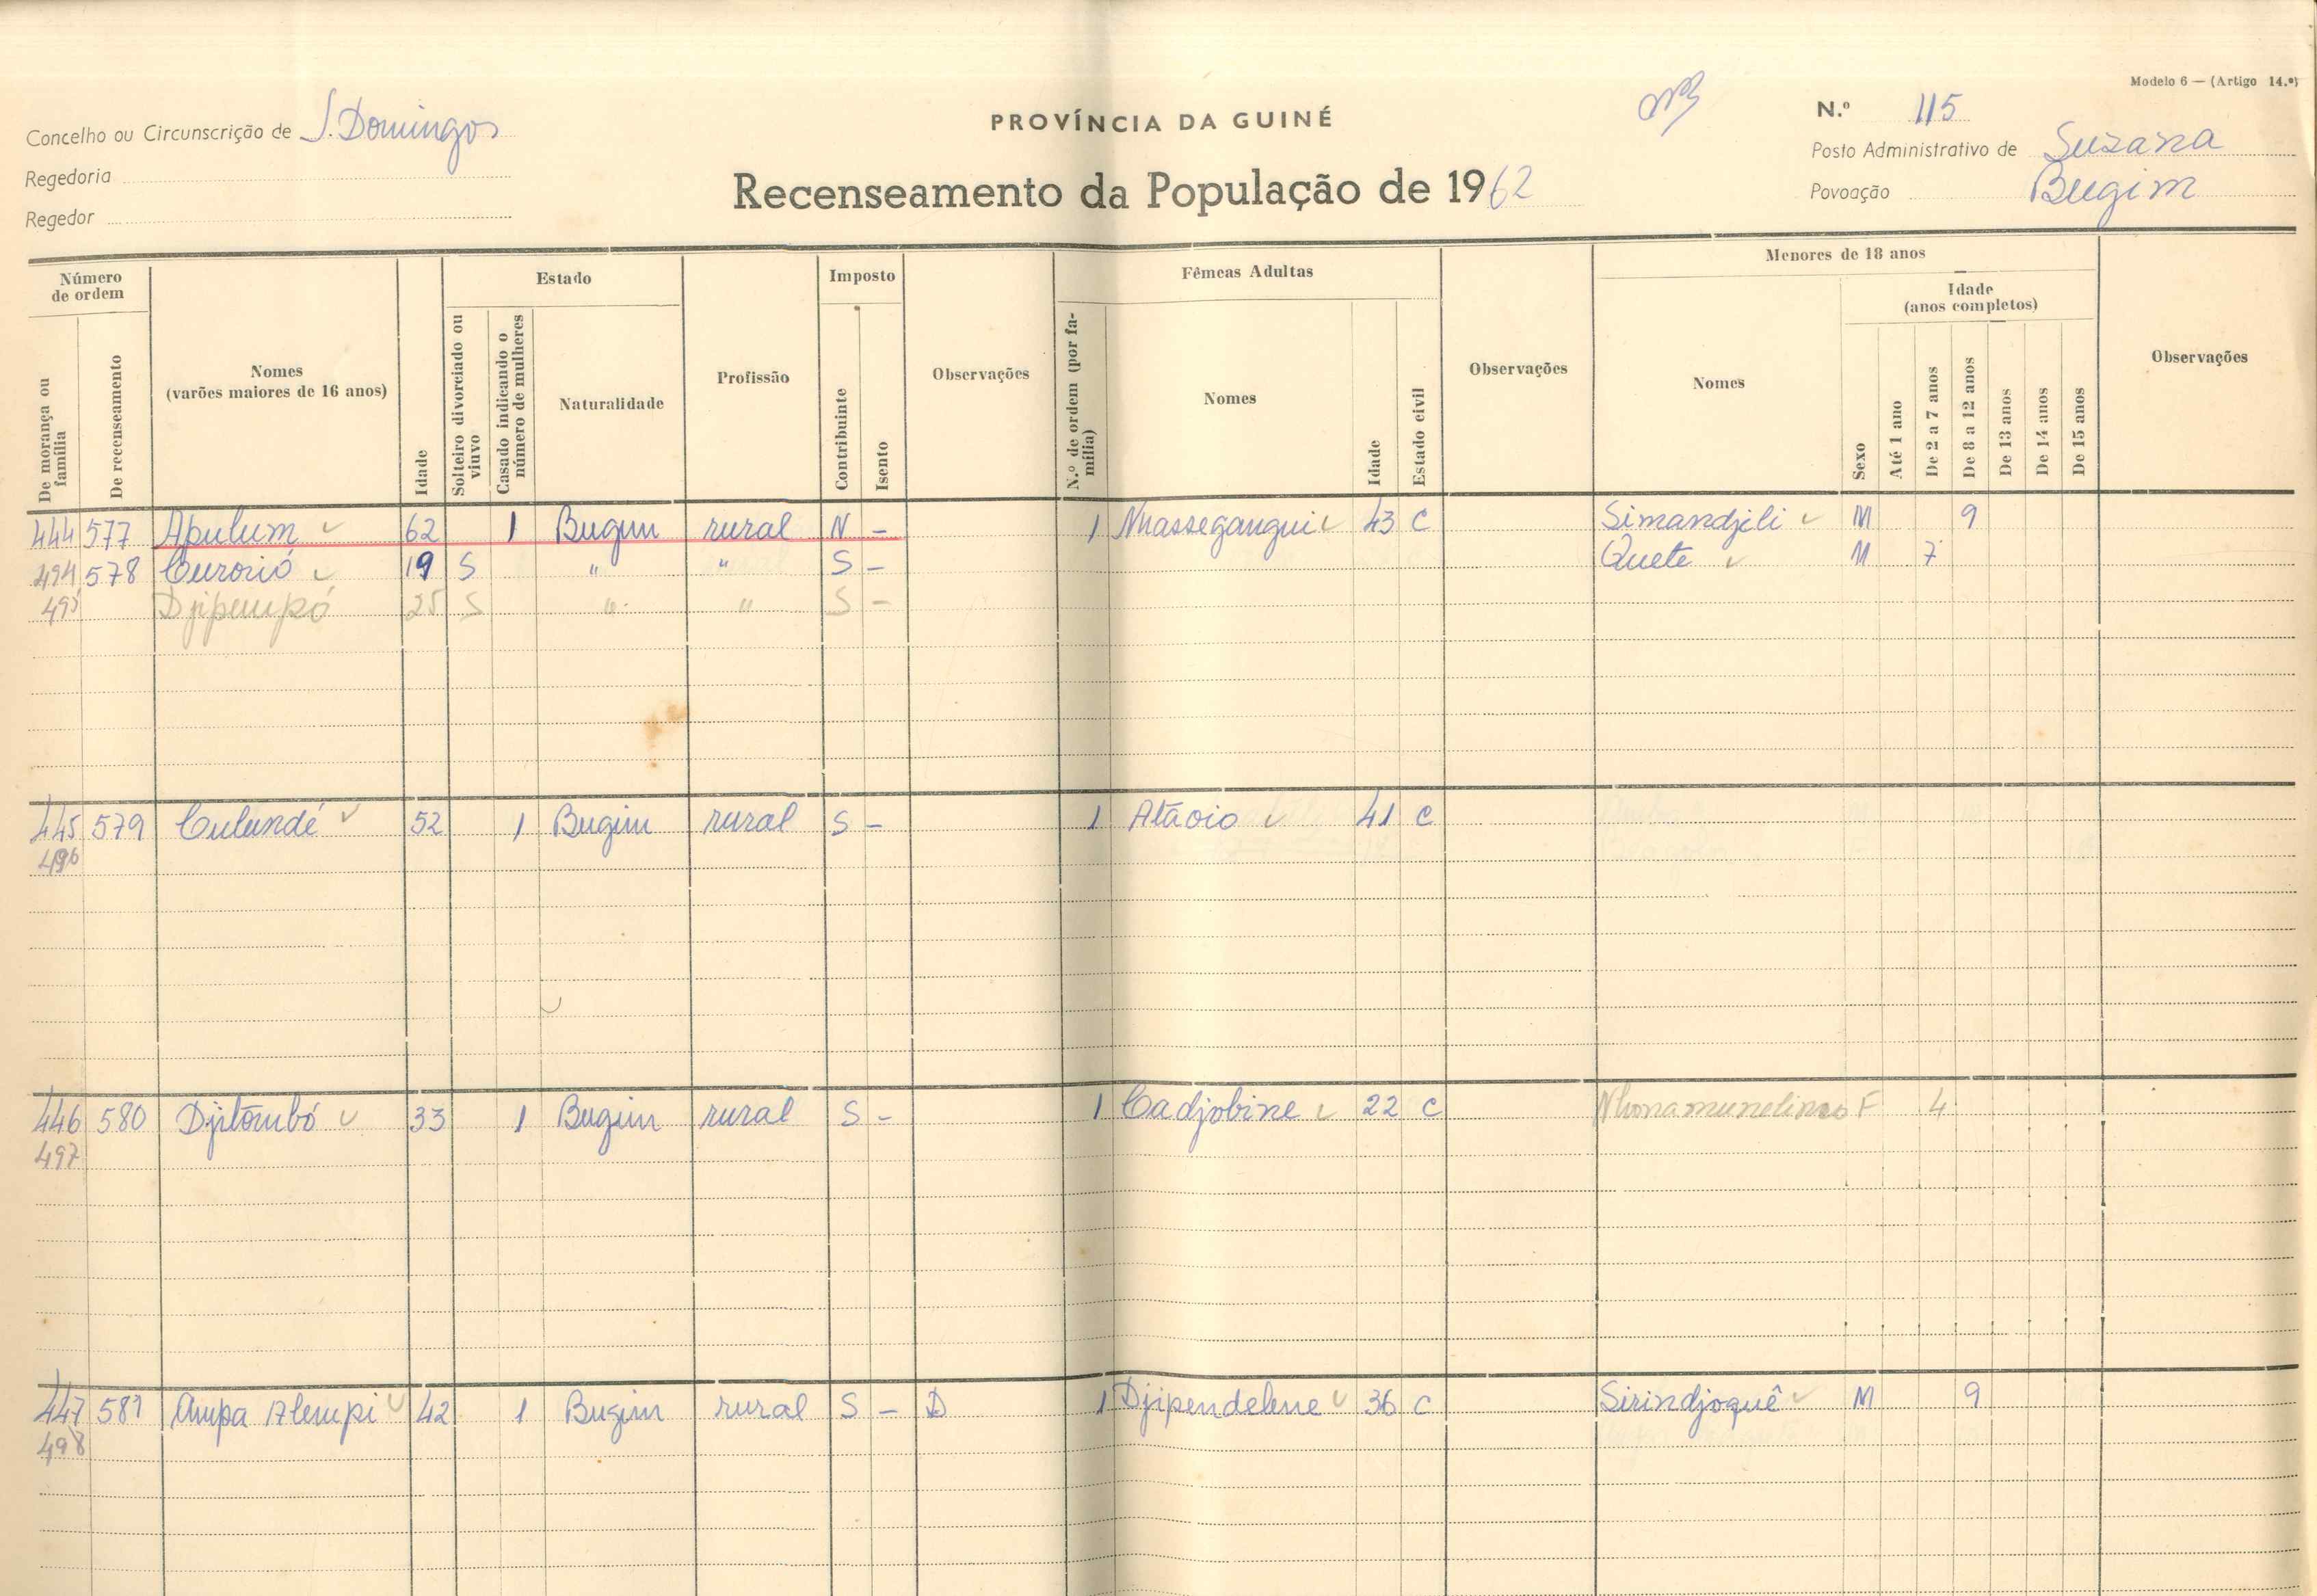 Modelo 6 — (Artigo 14.º)
Concelho ou Circunscrição de S. Domingos
PROVÍNCIA DA GUINÉ
N.º 115
Regedoria
Posto Administrativo de Suzana
Regedor
Recenseamento da População de 1962
Povoação Bugim
Número de ordem
Estado
Imposto
Fêmeas Adultas
Menores de 18 anos
Idade (anos completos)
De morança ou família
De recenseamento
Nomes (varões maiores de 16 anos)
Idade
Solteiro divorciado ou viuvo
Casado indicando o número de mulheres
Naturalidade
Profissão
Contribuinte
Isento
Observações
N.º de ordem (por família)
Nomes
Idade
Estado civil
Observações
Nomes
Sexo
Até 1 ano
De 2 a 7 anos
De 8 a 12 anos
De 13 anos
De 14 anos
De 15 anos
Observações
444 577 Apulum 62 1 Bugim rural N - 1 Nhassegangui 43 C Simandjeli M 9
494 578 Curorió 19 S " " S - Quete M 7
495 Djipempó 25 S " " S -
445 579 Culundé 52 1 Bugim rural S - 1 Atãoio 41 C
496
446 580 Djitombó 33 1 Bugim rural S - 1 Cadjobine 22 C F 4
497
447 581 Ampa Alempi 42 1 Bugim rural S - D 1 Djipendelene 36 C Sirindjoquê M 9
498